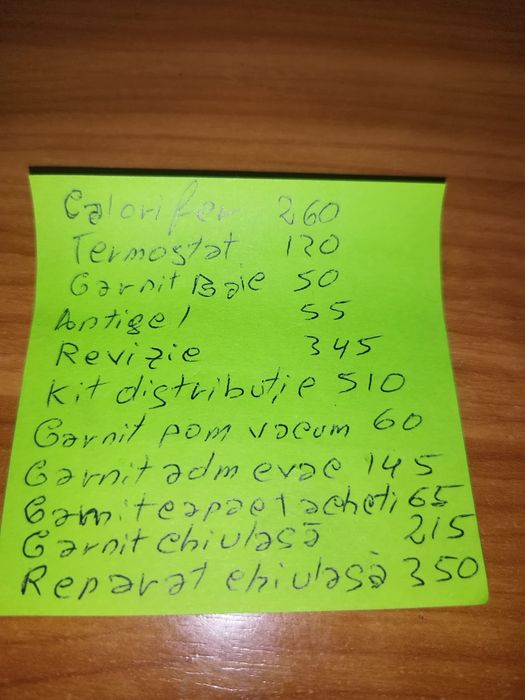 Calorifer 260
Termostat 120
Garnit Baie 50
Antigel 55
Revizie 345
Kit distributie 510
Garnit pom vacum 60
Garnit adm evac 145
Garnit capac tacheti 65
Garnit chiulasă 215
Reparat chiulasă 350